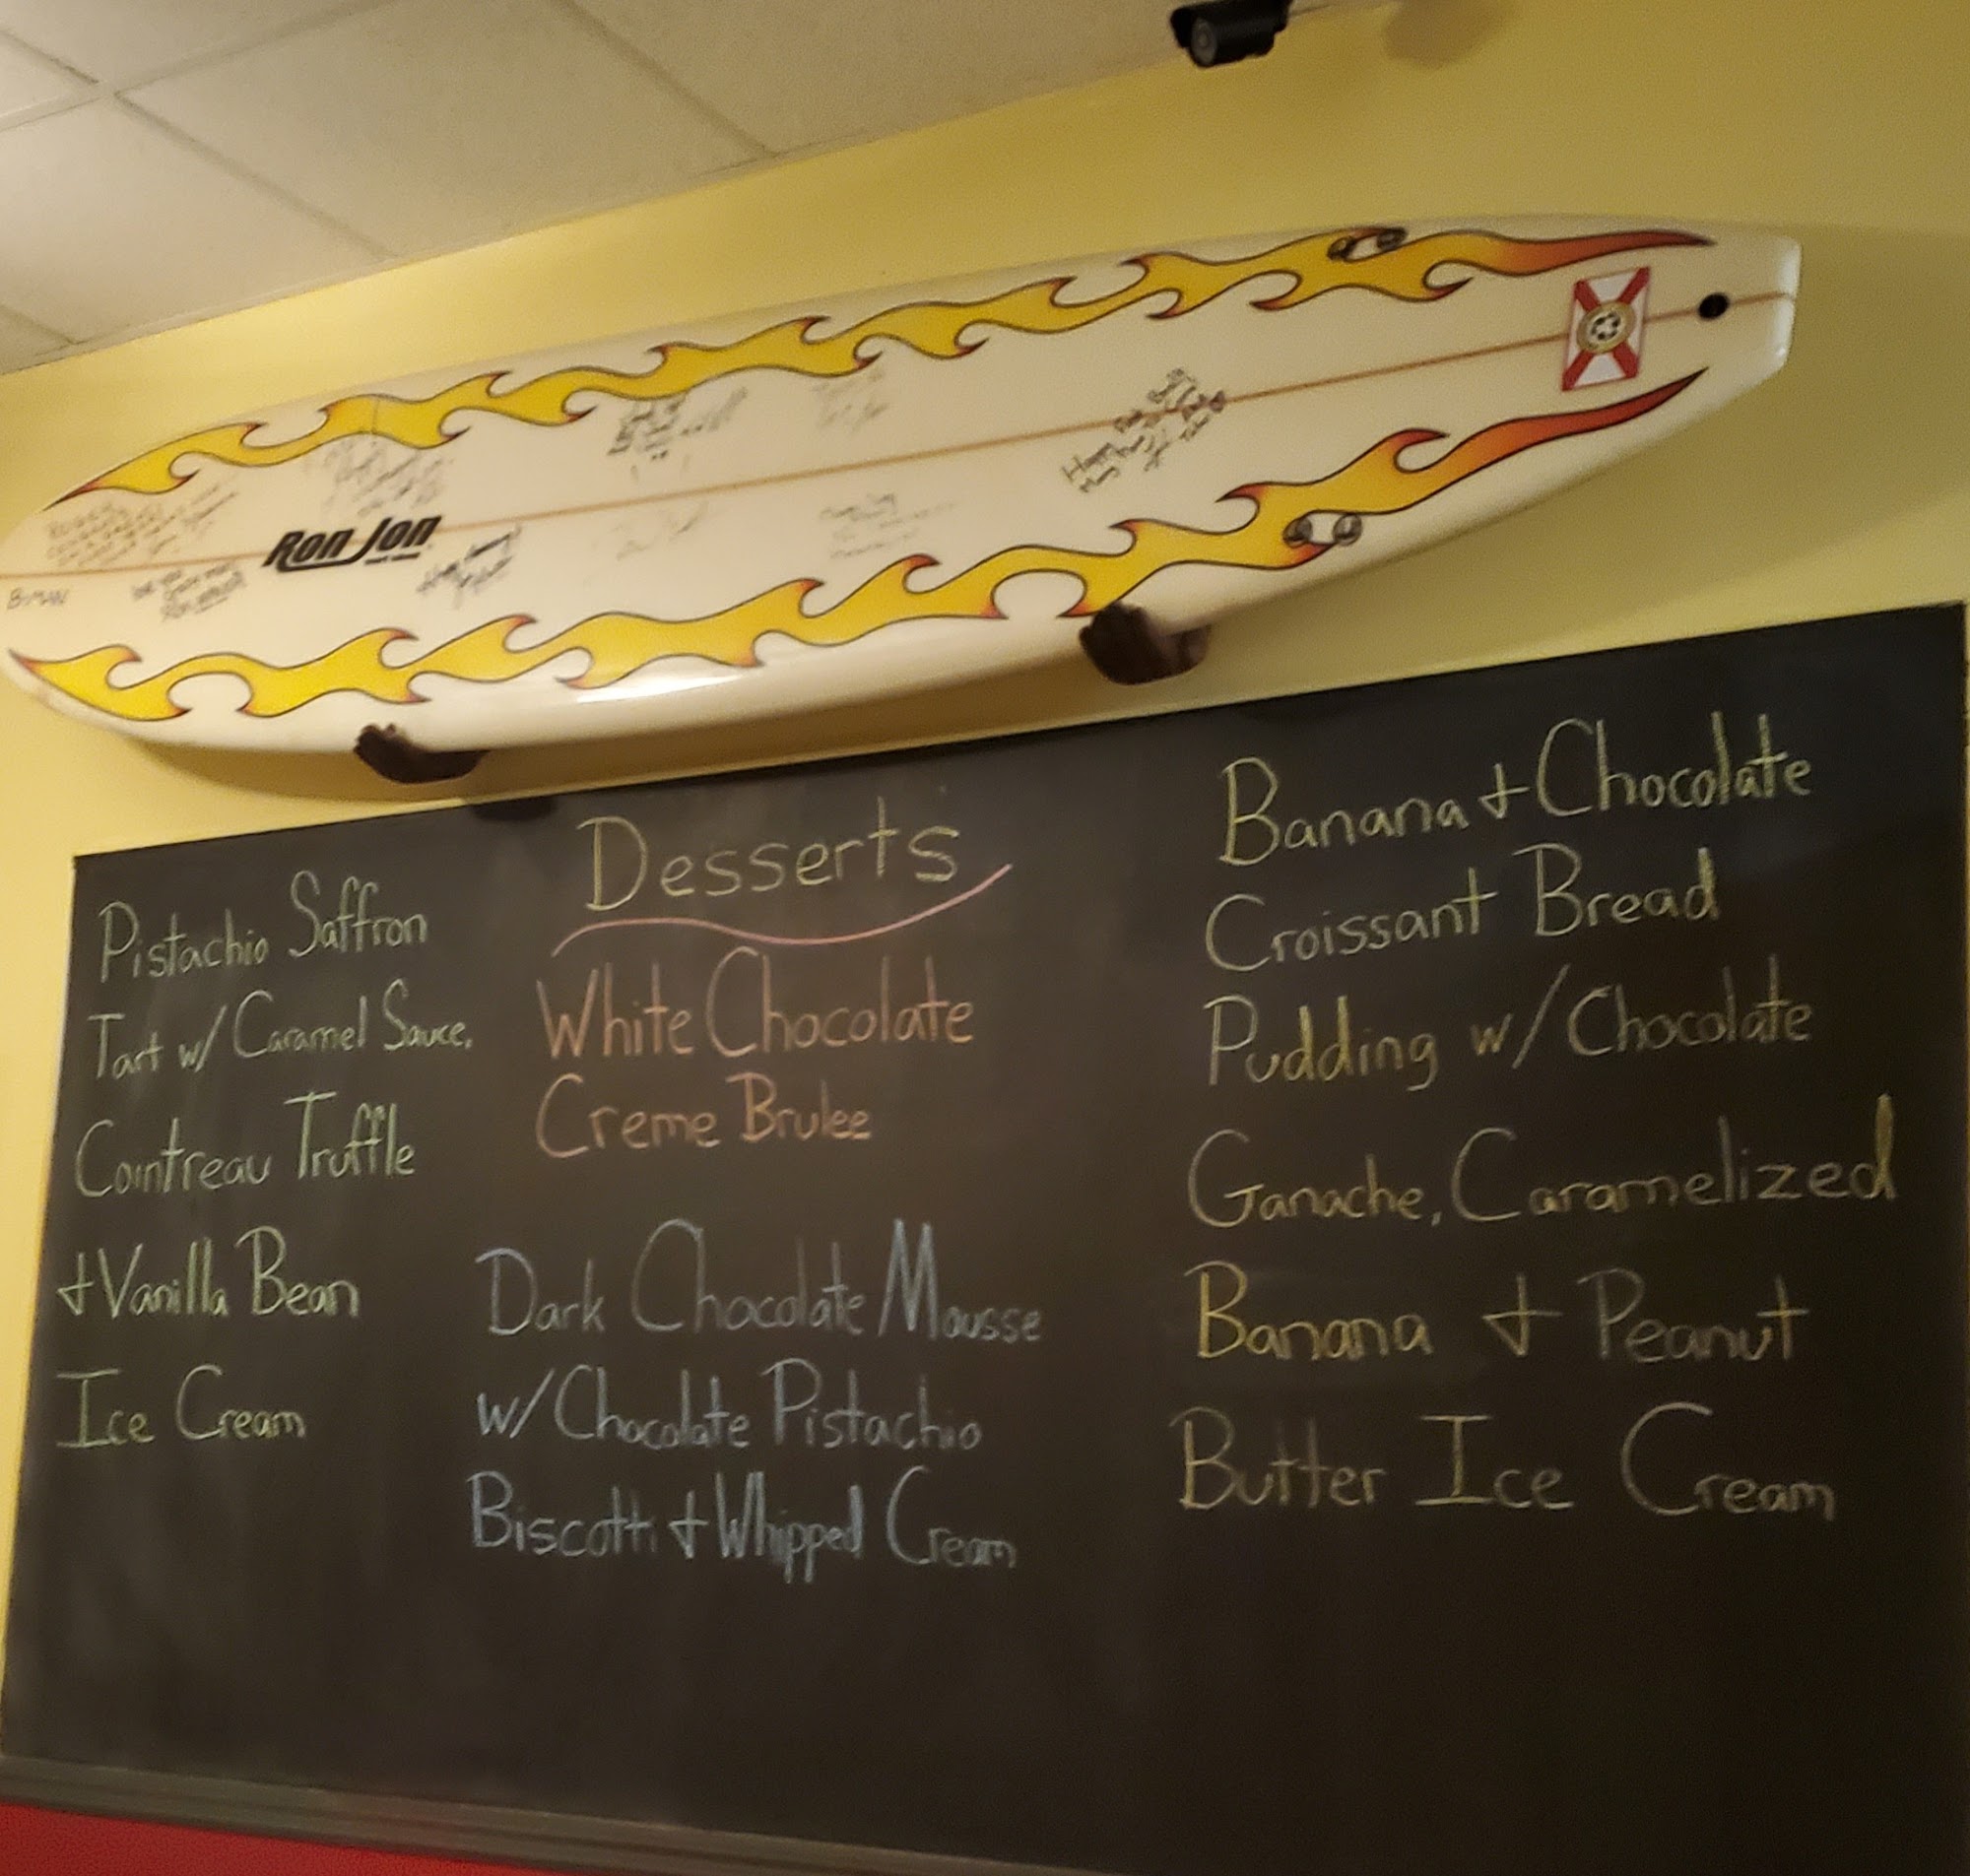 Ron Jon
B-MAN
Desserts
Pistachio Saffron
Tart w/ Caramel Sauce,
Cointreau Truffle
+ Vanilla Bean
Ice Cream
White Chocolate
Creme Brulee
Dark Chocolate Mousse
w/ Chocolate Pistachio
Biscotti + Whipped Cream
Banana + Chocolate
Croissant Bread
Pudding w/ Chocolate
Ganache, Caramelized
Banana + Peanut
Butter Ice Cream